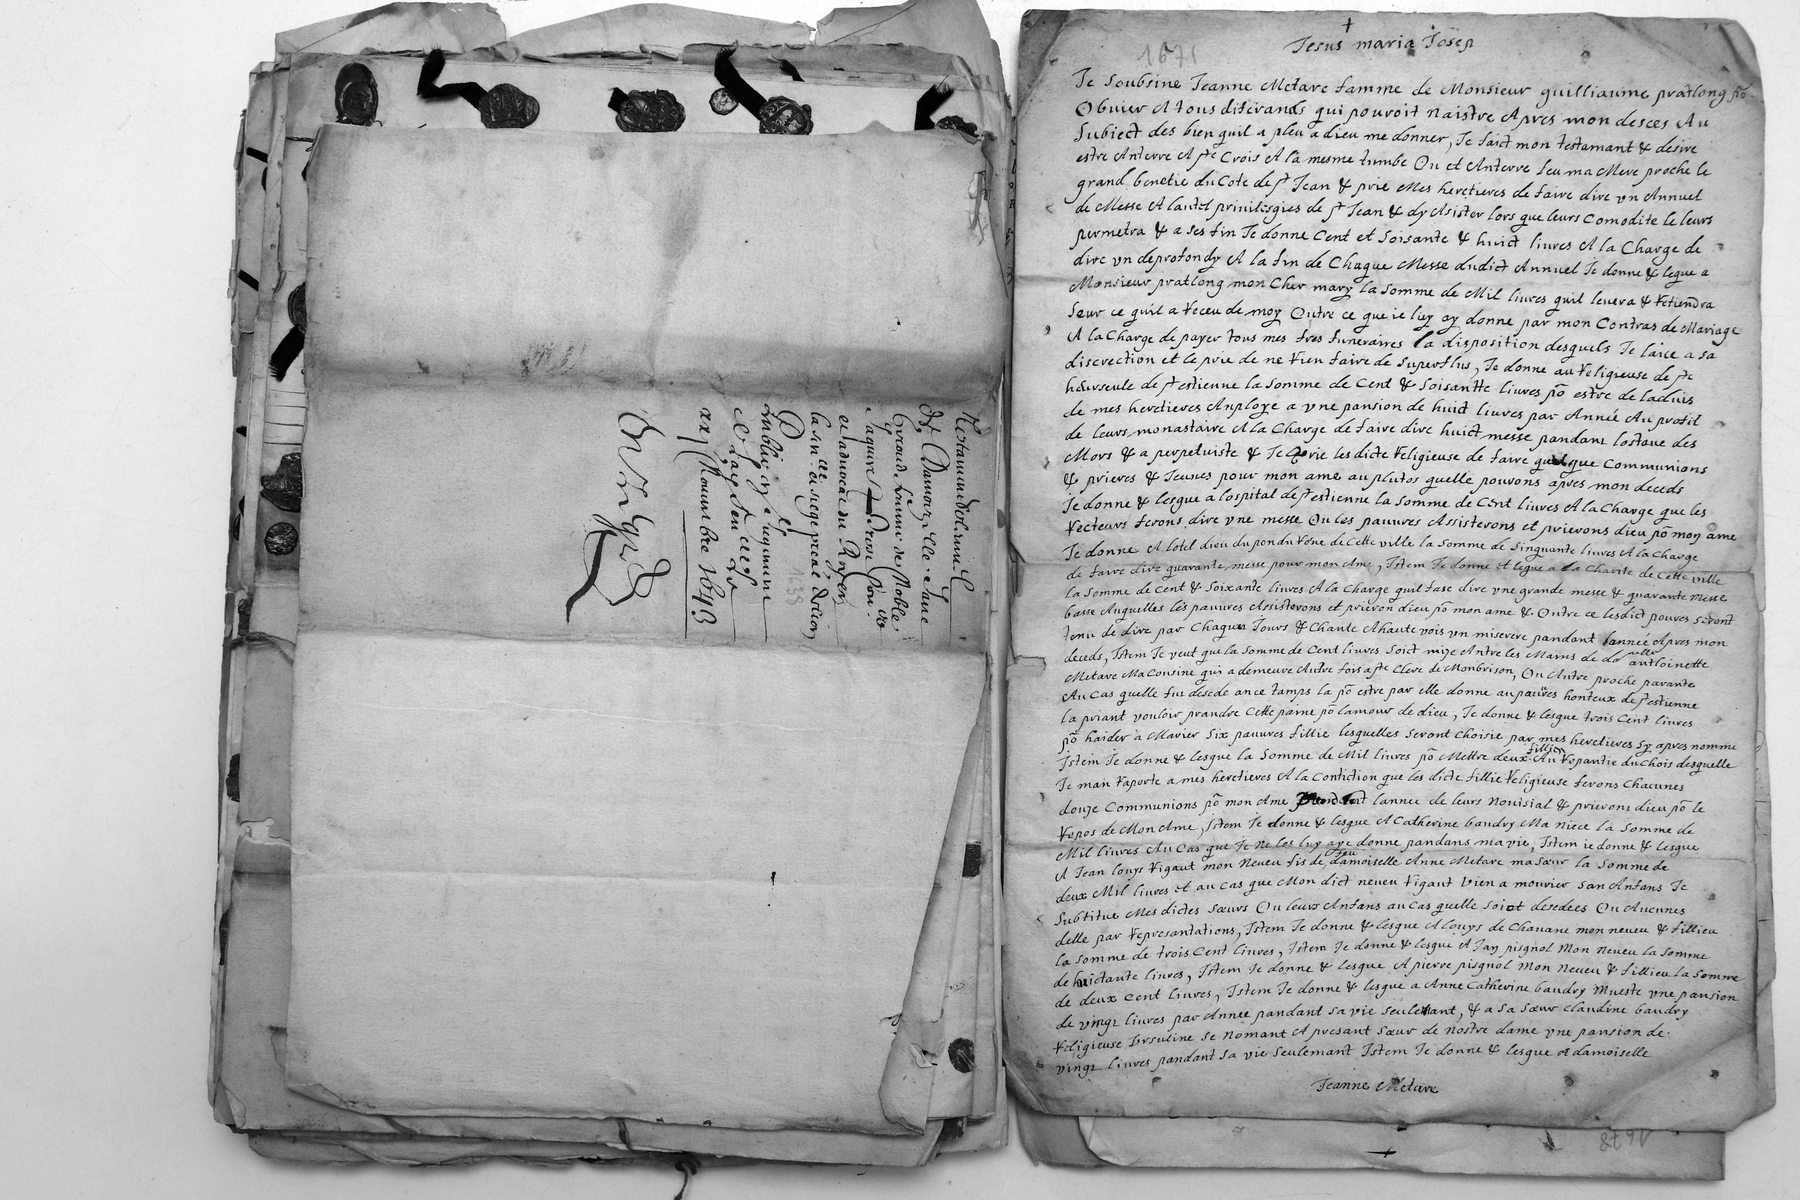 Testament
Damoizelle Jane
de Noble
et advocat du Roy en
publié en jugement
Novembre 1643
1671
Jesus maria Josep
Je soubsine Jeanne Metare famme de Monsieur guilliaume pratlong põ
Obvier A tous diferands qui pouroit naistre Apres mon desces Au
Subiect des bien quil a pleu a dieu me donner, Je faict mon testamant & desire
estre Anterre A ste Crois A la mesme tumbe Ou et Anterre feu ma Mere proche le
grand benetie du Cote de st Jean & prie Mes heretieres de faire dire vn Annuel
de Messe A lautel priuilesgies de st Jean & dy Asister lors que leurs Comodite le leurs
permetra & a ses fin Je donne Cent et Soisante & huict liures A la Charge de
dire vn deprofondy A la fin de Chaque Messe dudict Annuel Je donne & legue a
Monsieur pratlong mon Cher mary la Somme de Mil liures quil leuera & retiendra
Sœur ce quil a receu de moy Outre ce que ie luy ay donne par mon Contras de Mariage
A la Charge de payer tous mes fres funeraires la disposition desquels Je laice a sa
discrection et le prie de ne rien faire de Superflus, Je donne au religieuse de ste
heurseule de st estienne la Somme de Cent & Soisantte liures põ estre de laduis
de mes heretieres Anploye a vne pansion de huict liures par Année Au profit
de leurs monastaire A la Charge de faire dire huict messe pandant loctaue des
Mors & a perpetuiste & Je prie les dicte religieuse de faire quelque Communions
& prieres & Jeunes pour mon ame au plutos quelle pouvons apres mon deceds
Je donne & lesgue a lospital de st estienne la Somme de Cent liures A la Charge que les
recteurs ferons dire vne messe Ou les pauures Assisterons et prierons dieu põ mon ame
Je donne A lotel dieu du pon du rosne de Cette ville la Somme de Singuante liures A la Charge
de faire dire quarante messe pour mon Ame, Jstem Je donne et legue a la Charite de Cette ville
la Somme de Cent & Soixante liures A la Charge quil fase dire vne grande messe & quarante Messe
basse Auquelles les pauures Assisterons et prieron dieu põ mon ame & Outre ce lesdict poures seront
tenu de dire par Chaque Jours & Chante A haute vois vn miserere pandant lannée Apres mon
deceds, Jstem Je veut que la Somme de Cent liures soict mise Antre les Mains de dd antoinette
Metare Ma Cousine qui a demeure Autre fois a ste Clere de Monbrison, Ou Autre proche parante
Au Cas quelle fut desede an ce tamps la põ estre par elle donne au pauures honteux de st estienne
la priant vouloir prandre Cette paine põ lamour de dieu, Je donne & lesgue trois Cent liures
põ haider a Marier Six pauures fillie lesquelles Seront Choisie par mes heretieres Sy apres nomme
Jstem Je donne & lesgue la Somme de Mil liures põ Mettre deux fillies Au repantie du Chois desquelle
Je man raporte a mes heretieres A la Contiction que les dicte fillie religieuse ferons Chacunes
douze Communions põ mon Ame lannee de leurs Nouisial & prierons dieu põ le
repos de Mon Ame, Jstem Je donne & lesgue A Catherine baudry Ma niece la Somme de
Mil liures Au Cas que Je ne les luy aye donne pandans ma vie, Jstem ie donne & lesgue
A Jean louys rigaut mon Neueu fis de feu damoiselle Anne Metare ma Sœur la Somme de
deux Mil liures et au cas que Mon dict neueu rigaut vien a mourier San Anfans Je
Substitue Mes dictes Sœurs Ou leurs Anfans au cas quelle Soict desedees Ou Aucunes
delle par representations, Jstem Je donne & lesgue A louys de Chauane mon neueu & fillieu
la Somme de trois Cent liures, Jstem Je donne & lesgue A Jan pisgnol Mon Neueu la Somme
de huictante liures, Jstem Je donne & lesgue A pierre pisgnol Mon Neueu & fillieu la Somme
de deux Cent liures, Jstem Je donne & lesgue a Anne Catherine baudry Mueste vne pansion
de vingt liures par Annee pandant sa vie seulemant, & a sa sœur Claudine baudry
religieuse Vrsuline se nomant A presant Sœur de nostre dame vne pansion de
vingt liures pandant Sa vie Seulemant Jstem Je donne & lesgue a damoiselle
Jeanne Metare